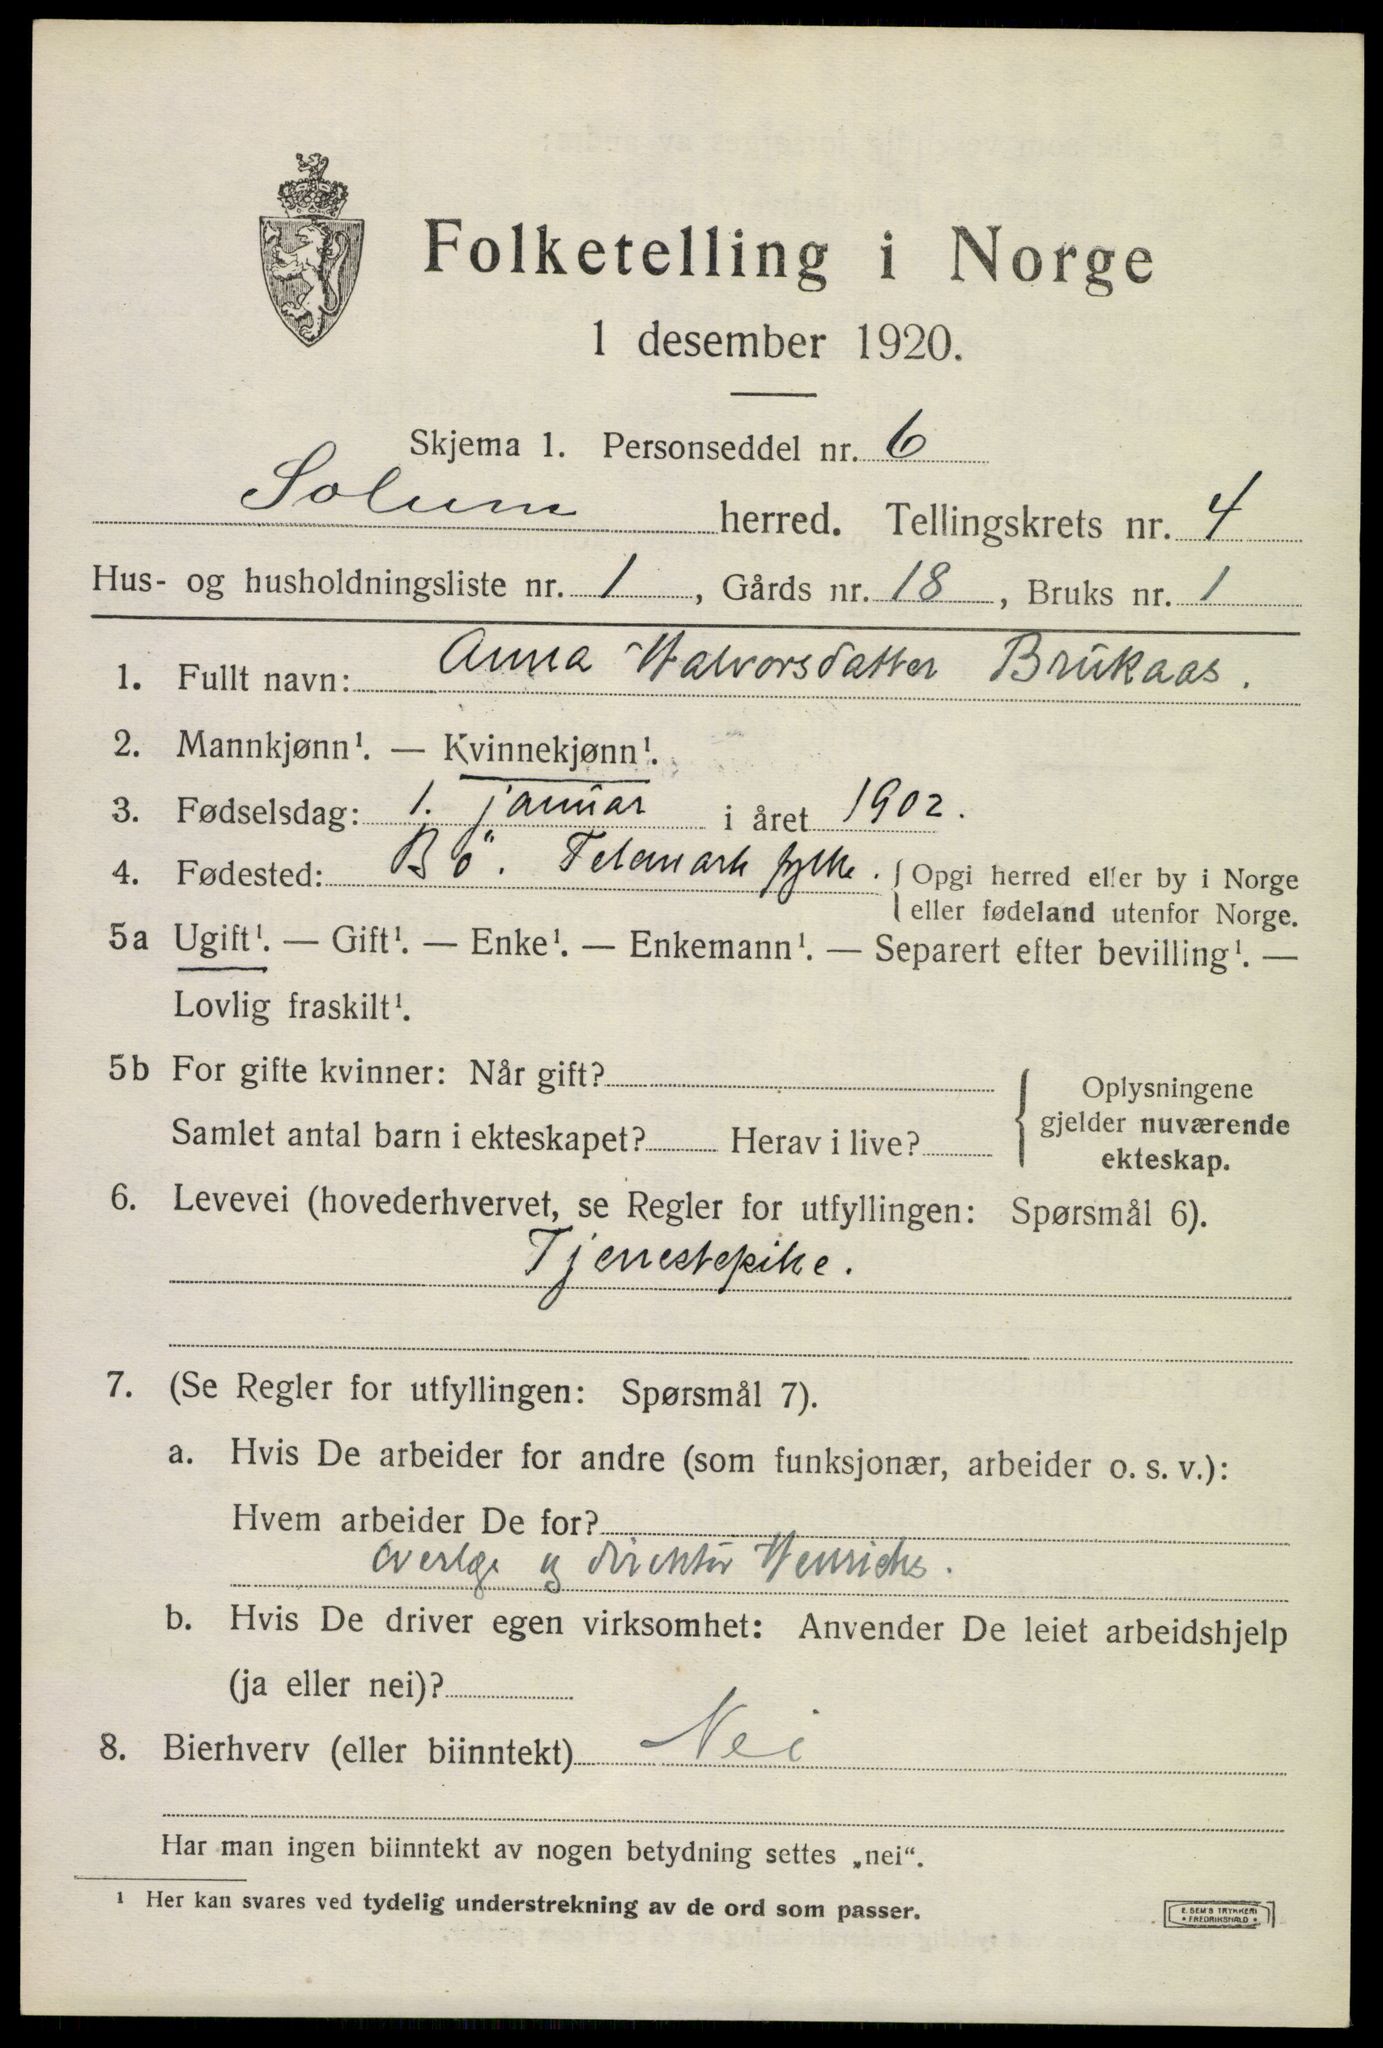 Folketelling i Norge
1 desember 1920.
Skjema 1. Personseddel nr. 6
Solum herred. Tellingskrets nr. 4
Hus- og husholdningsliste nr. 1, Gårds nr. 18, Bruks nr. 1
1. Fullt navn: Anna Halvorsdatter Brukaas.
2. Mannkjønn¹. — Kvinnekjønn¹.
3. Fødselsdag: 1. januar i året 1902.
4. Fødested: Bö. Telemark fylke. { Opgi herred eller by i Norge
eller fødeland utenfor Norge.
5a Ugift¹. — Gift¹. — Enke¹. — Enkemann¹. — Separert efter bevilling¹. —
Lovlig fraskilt¹.
5b For gifte kvinner: Når gift?
Samlet antal barn i ekteskapet? Herav i live?
{ Oplysningene
gjelder nuværende
ekteskap.
6. Levevei (hovederhvervet, se Regler for utfyllingen: Spørsmål 6).
Tjenestepike.
7. (Se Regler for utfyllingen: Spørsmål 7).
a. Hvis De arbeider for andre (som funksjonær, arbeider o. s. v.):
Hvem arbeider De for?
overlge og direktör Henrichs.
b. Hvis De driver egen virksomhet: Anvender De leiet arbeidshjelp
(ja eller nei)?
8. Bierhverv (eller biinntekt) Nei
Har man ingen biinntekt av nogen betydning settes „nei“.
¹ Her kan svares ved tydelig understrekning av de ord som passer.
E. SEM'S TRYKKERI
* FREDRIKSHALD *